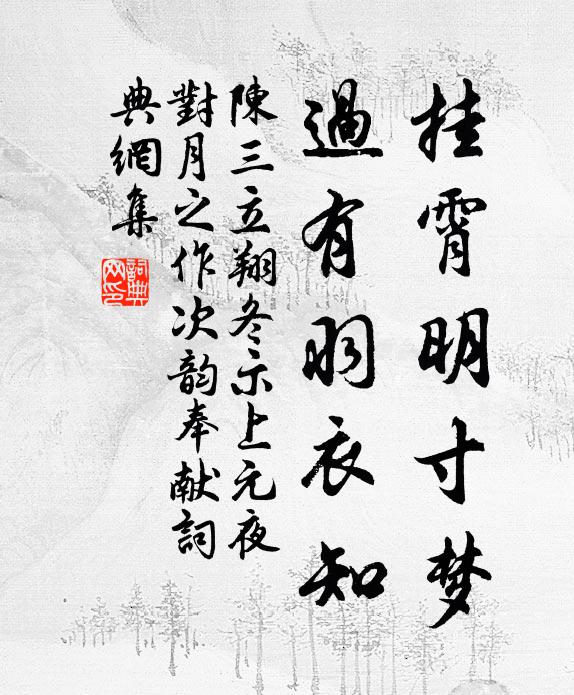 挂霄明寸梦
過有羽衣知
陳三立翔冬示上元夜
對月之作次韵奉献詞
典網集
詞典
网印